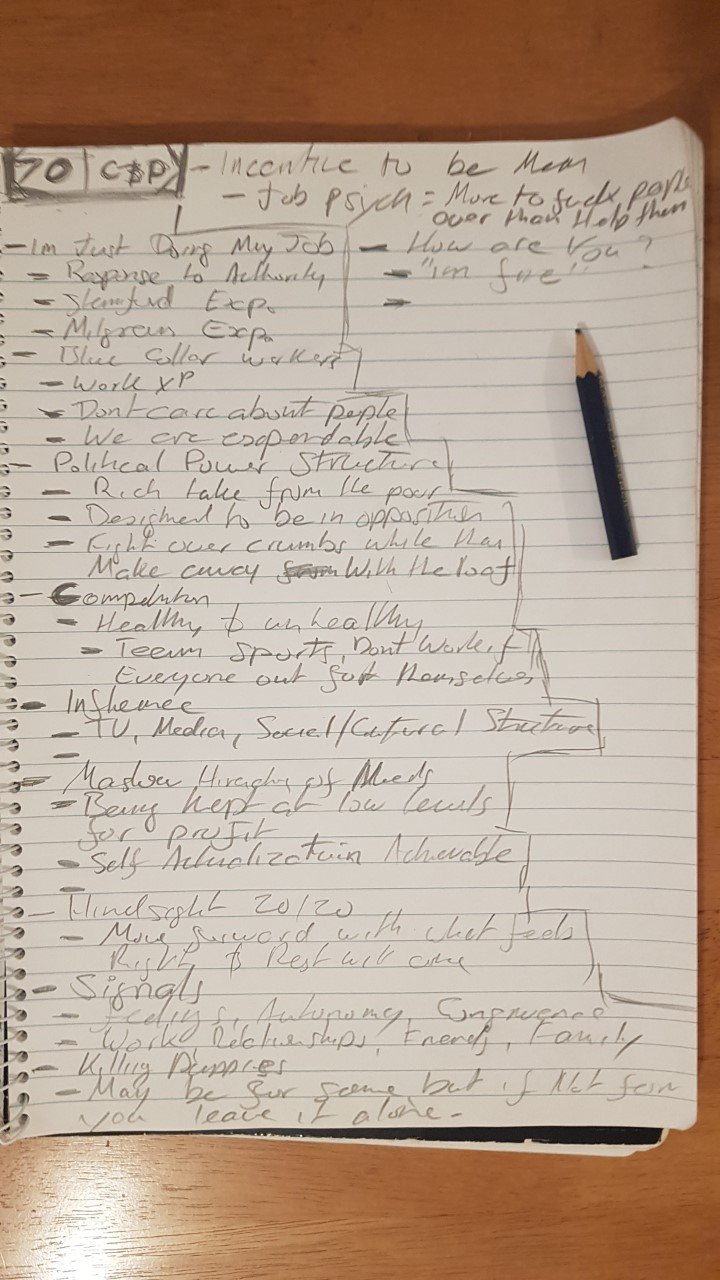 70 | C&P - Incentive to be Mean
- Job psych = More to fuck people
over than Help them
- Im Just Doing My Job
- Response to Authority
- Stamfurd Exp.
- Milgram Exp.
- How are You?
- "im fine"
-
- Blue Collar workers
- Work XP
- Dont care about people
- We are expendable
- Political Power Structure
- Rich take from the poor
- Designed to be in opposition
- Fight over crumbs while they
Make away With the loaf
- Competition
- Healthy & unhealthy
- Team Sports, Dont Work if
Everyone out for themselves
- Influence
- TV, Media, Social/Cultural Structure
-
- Maslow Hirachy of Needs
- Being kept at low levels
for profit
- Self Actualization Achievable
-
- Hindsight 20/20
- Move forward with what feels
Right & Rest will come
- Signals
- Feelings, Autonomy, Congruence
- Work, Relationships, Friends, Family
- Killing Puppies
- May be for some but if Not for
you leave it alone.